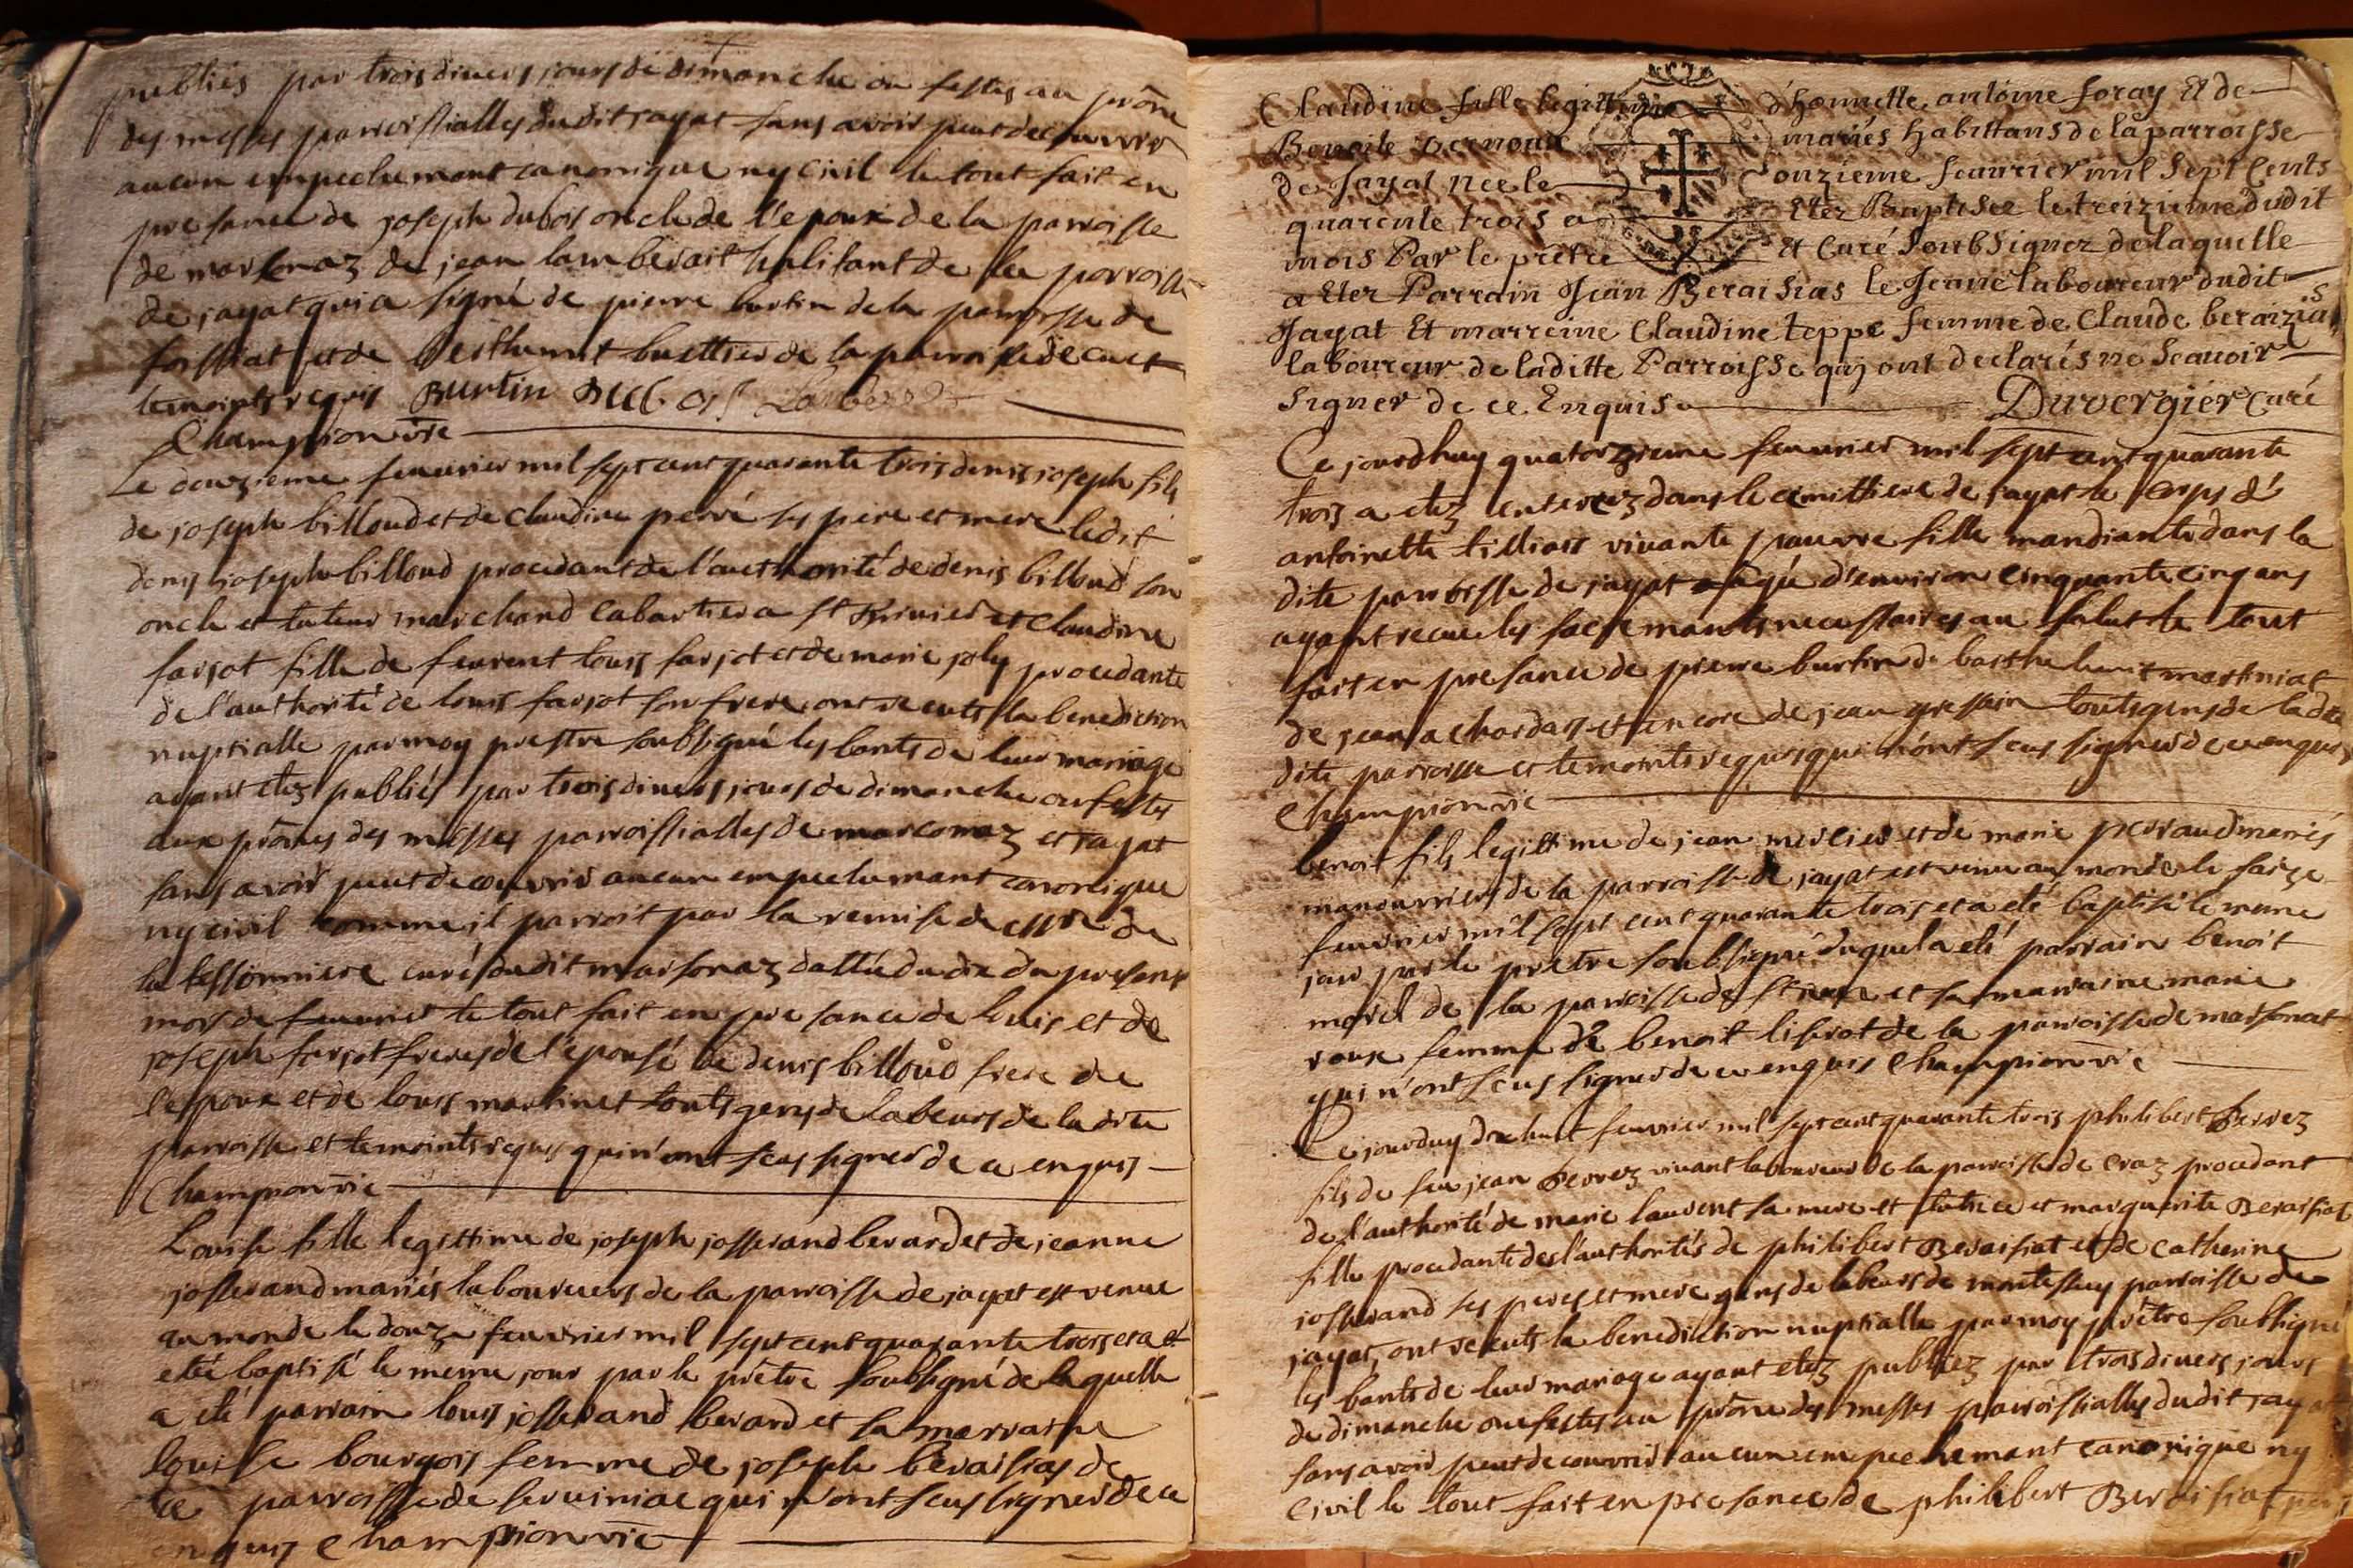 publiés par trois divers jours de dimanche ou festes au prône
des messes parroissialles dudit jayat sans avoir peut decouvrir
aucun empechemant canonique ny civil le tout fait en
presance de joseph dubois oncle de l'epoux de la parroisse
de marsonaz de jean lamberait habitant de la parroisse
de jayat qui a signé de pierre burtin de la parroisse de
foissiat et de de la parroisse de cuet
temoints requis Burtin Dubois
Championvie
Le douzieme feuvrier mil sept cent quarante trois denis joseph fils
de joseph billoud et de claudine perré ses pere et mere ledit
denis joseph billoud procedant de l'aucthorité de denis billoud son
oncle et tuteur marchand cabartier a st et claudine
farjot fille de feu louis farjot et de marie joly procedante
de l'authorité de louis farjot son frere ont recuts la benediction
nuptialle par moy prestre soubsigné les bants de leur mariage
ayant etez publiés par trois divers jours de dimanche ou festes
aux prônes des messes parroissialles de marsonaz et jayat
sans avoir peut decouvrir aucun empechemant canonique
ny civil comme il parroit par la remise de de
la tessonniere curé dudit marsonaz dattée du dix du presant
mois de feuvrier le tout fait en presance de louis et de
joseph farjot freres de l'epousé de denis billoud frere de
l'espoux et de louis martinet touts gens de labeurs de la dite
parroisse et temoints requis qui n'ont sceus signer de ce enquis
Championvie
Louise fille legittime de joseph josserand berard et de jeanne
josserand mariés laboureurs de la parroisse de jayat est venue
au monde le douze feuvrier mil sept cent quarante trois et a et
eté baptisé le meme jour par le prêtre soubsigné de laquelle
a eté parrain louis josserand berard et sa marraine
louise bourgois femme de joseph beraisias de
la parroisse de serviniac qui n'ont sceus signer de ce
enquis Championvie
Claudine fille legittime d'honnette antoine foray Et de
Benoite vernoux mariés habittans de la parroisse
de Jayat née le onzieme feuvrier mil sept Cents
quarente trois a Eter Baptisée le treizieme dudit
mois Par le prêtre Et Curé soubsignez de laquelle
a Eter Parrain Jean Beraisias le Jeune laboureur dudit
Jayat Et marreine Claudine teppe femme de Claude beraizias
laboureur de laditte Parroisse qui ont declarés ne scauoir
signer de ce Enquise Duvergier Curé
Ce jourdhuy quatorzieme feuvrier mil sept cent quarante
trois a etez enterrez dans le cimittiere de jayat le corps d'
antoinette vivante pauvre fille mandiante dans la
dite parroisse de jayat agé d'environ cinquante cinq ans
ayant recue les sacremants necessaires au salut le tout
fait en presance de pierre burtin de barthelemit martiniat
de jean a chardas et encore de jean touts gens de ladte
dite parroisse et temoints requis qui n'ont sceus signer de ce enquis
Championvie
benoit fils legittime de jean mercier et de marie perraud mariés
manouvriers de la parroisse de jayat est venu au monde le saize
feuvrier mil sept cent quarante trois et a eté baptisé le meme
jour par le prêtre soubsigné duquel a eté parrain benoit
morel de la parroisse de st et sa marraine marie
roux femme de benoit de la parroisse de marsonat
qui n'ont sceus signer de ce enquis Championvie
Ce jourduy dixhuit feuvrier mil sept cent quarante trois philibert Perrez
fils de feu jean Perrez vivant laboureur de la parroisse de craz procedant
de l'authorité de marie laurent sa mere et tutrice et marguerite Beraisiat
fille procedante de l'authorités de philibert Beraisiat et de catherine
josserand ses peres et mere gens de labeurs de parroisse de
jayat, ont recuts la benediction nuptialle par moy prêtre soubsigné
les bants de leur mariage ayant etez publiez par trois divers jours
de dimanche ou festes au prône des messes parroissialles dudit jayat
sans avoir peut decouvrir aucun empechemant canonique ny
civil le tout fait en presance de philibert Beraisiat